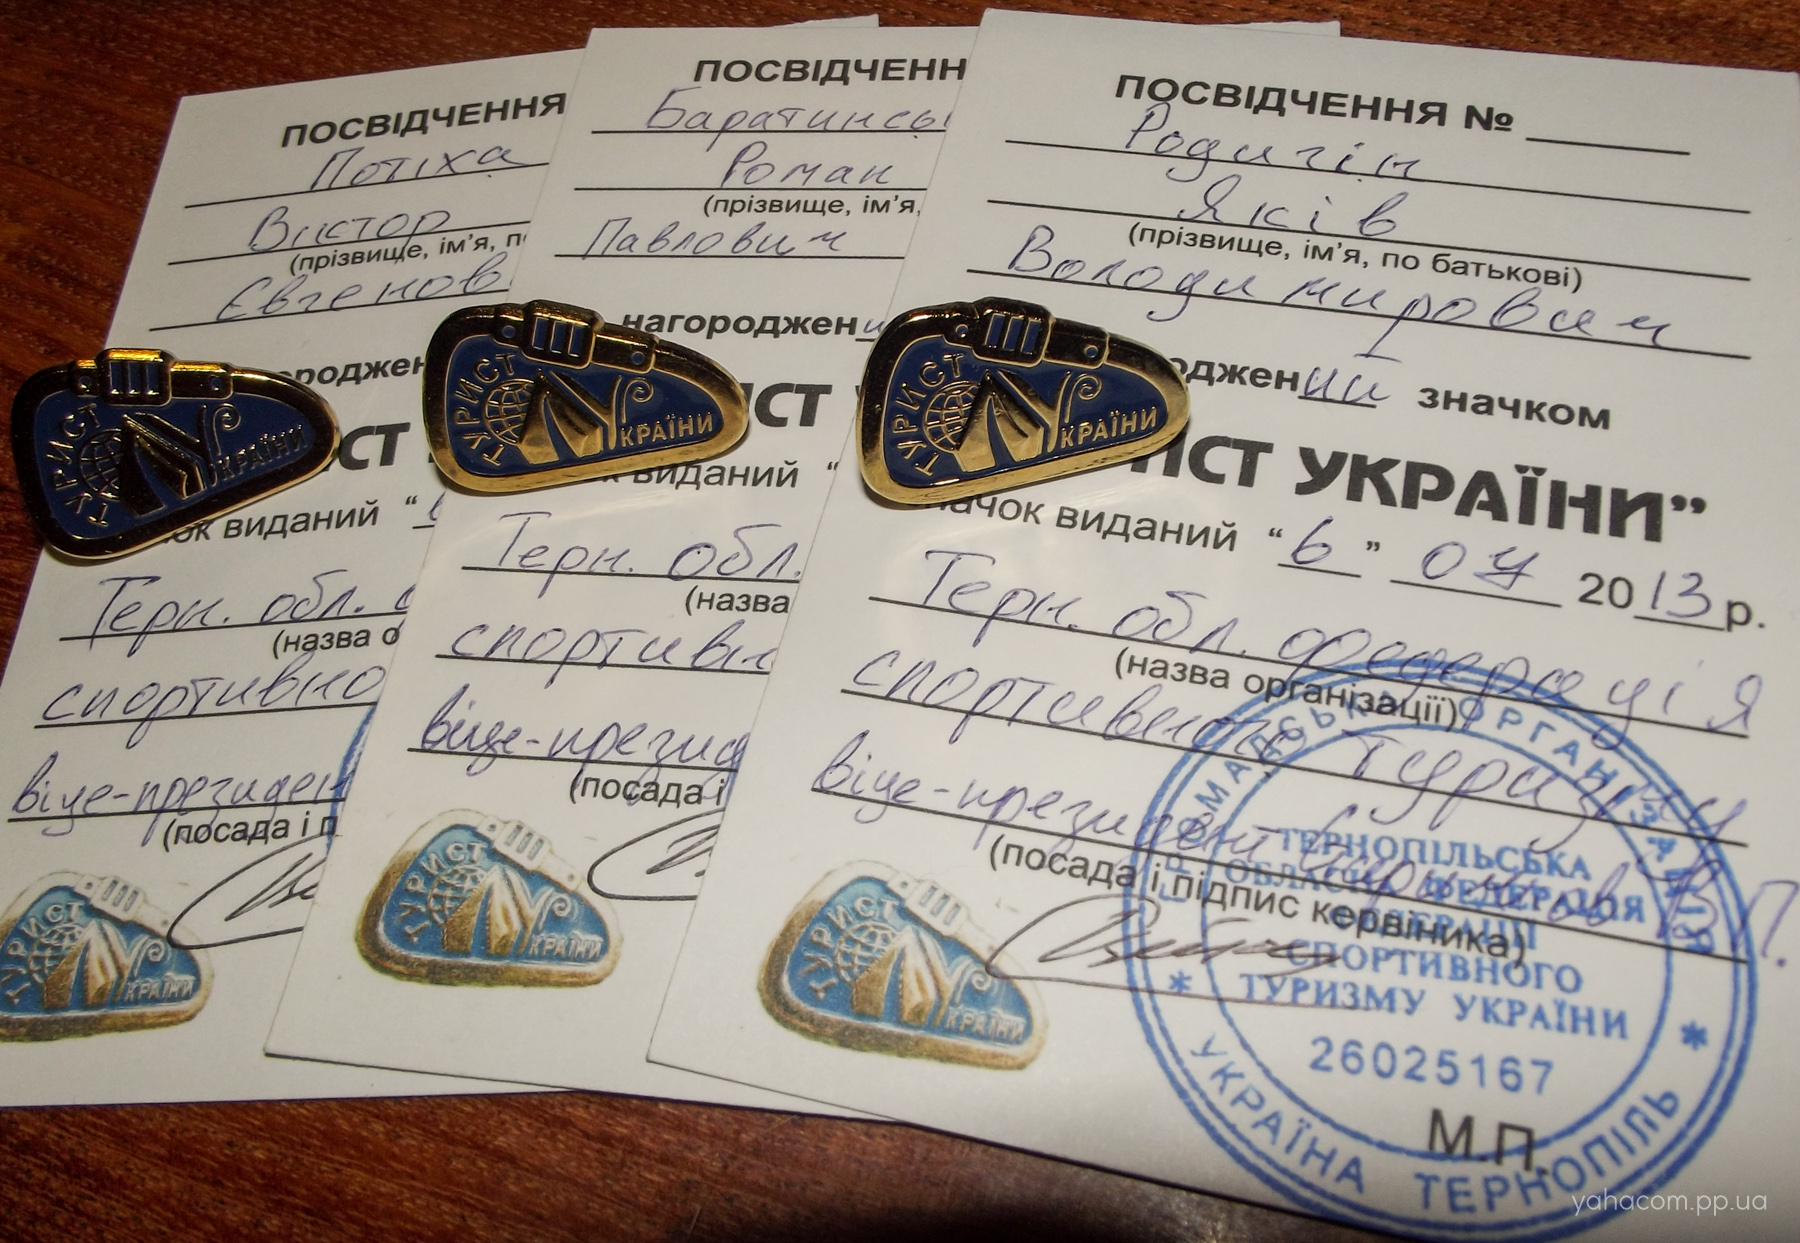 ПОСВІДЧЕННЯ
Потіха
Віктор
(прізвище, ім'я, п
Євгенов
ороджен
ТУРИСТ УКРАЇНИ
СТ
ок виданий "
Терн. обл.
(назва о
спортивно
віце-президен
(посада і п
ТУРИСТ УКРАЇНИ
ПОСВІДЧЕНН
Баратинсь
Роман
(прізвище, ім'я,
Павлович
нагороджен
ТУРИСТ УКРАЇНИ
ИСТ
к виданий "
Терн. обл.
(назва
спортивн
віце-презид
(посада і
ТУРИСТ УКРАЇНИ
ПОСВІДЧЕННЯ №
Родигін
Яків
(прізвище, ім'я, по батькові)
Володимирович
оджений значком
ТУРИСТ УКРАЇНИ
ИСТ УКРАЇНИ"
начок виданий "6" 07 2013р.
Терн. обл. федерація
(назва організації)
спортивного туризму
віце-президент
П.
(посада і підпис керівника)
ТУРИСТ УКРАЇНИ
ГРОМАДСЬКА ОРГАНІЗАЦІЯ
ТЕРНОПІЛЬСЬКА
ОБЛАСНА ФЕДЕРАЦІЯ
ФЕДЕРАЦІЇ
СПОРТИВНОГО
ТУРИЗМУ УКРАЇНИ
26025167
М.П.
* УКРАЇНА ТЕРНОПІЛЬ *
yahacom.pp.ua